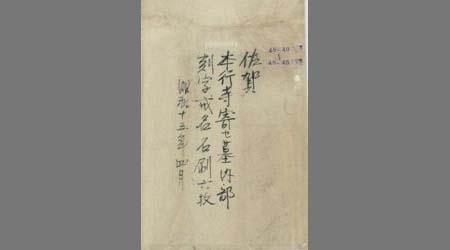 佐賀
本行寺寄せ墓内部
刻字戒名石刷六枚
昭和十三年四月